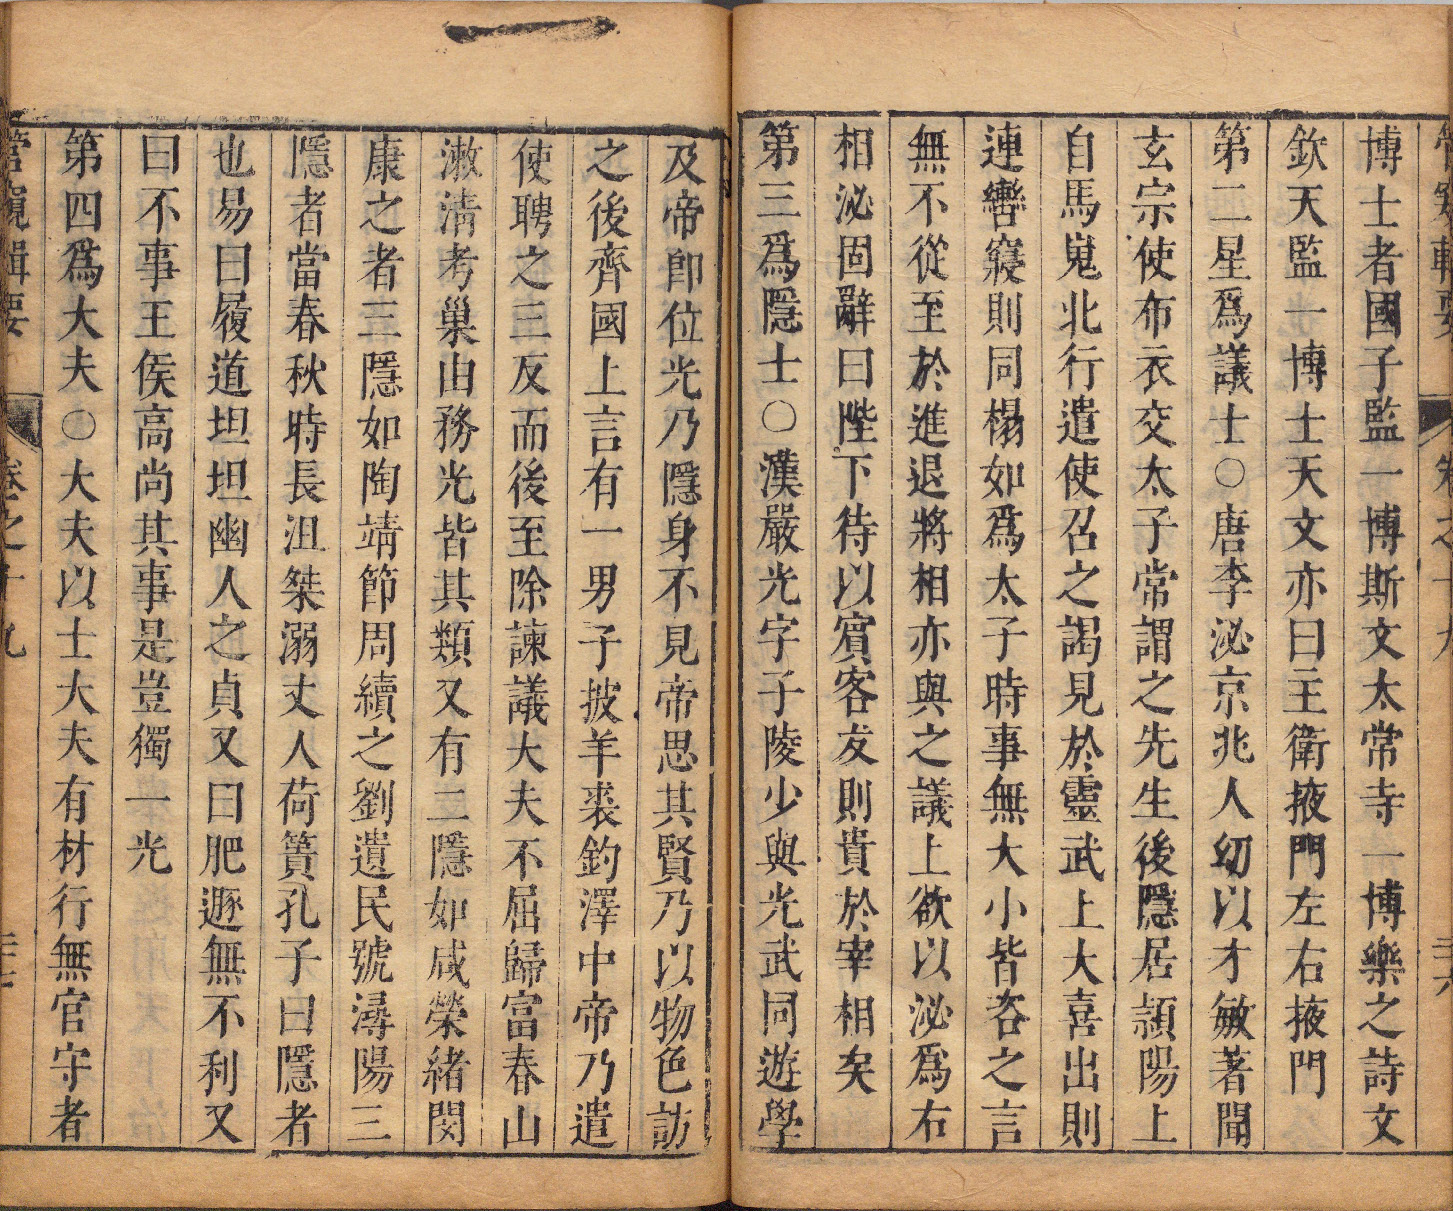 博士者國子監一博斯文太常寺一博樂之詩文
欽天監一博士天文亦曰主衛掖門左右掖門
第二星爲議士○唐李泌京兆人幼以才敏著聞
玄宗使布衣交太子常謂之先生後隱居潁陽上
自馬嵬北行遣使召之謁見於靈武上大喜出則
連轡寢則同榻如爲太子時事無大小皆咨之言
無不從至於進退將相亦與之議上欲以泌爲右
相泌固辭曰陛下待以賓客友則貴於宰相矣
第三爲隱士○漢嚴光字子陵少與光武同遊學
及帝卽位光乃隱身不見帝思其賢乃以物色訪
之後齊國上言有一男子披羊裘釣澤中帝乃遣
使聘之三反而後至除諫議大夫不屈歸富春山
漱清考巢由務光皆其類又有二隱如咸榮緒閔
康之者三隱如陶靖節周續之劉遺民號潯陽三
隱者當春秋時長沮桀溺丈人荷蕢孔子曰隱者
也易曰履道坦坦幽人之貞又曰肥遯無不利又
曰不事王侯高尚其事是豈獨一光
第四爲大夫○大夫以士大夫有材行無官守者
管窺輯要 卷之十九